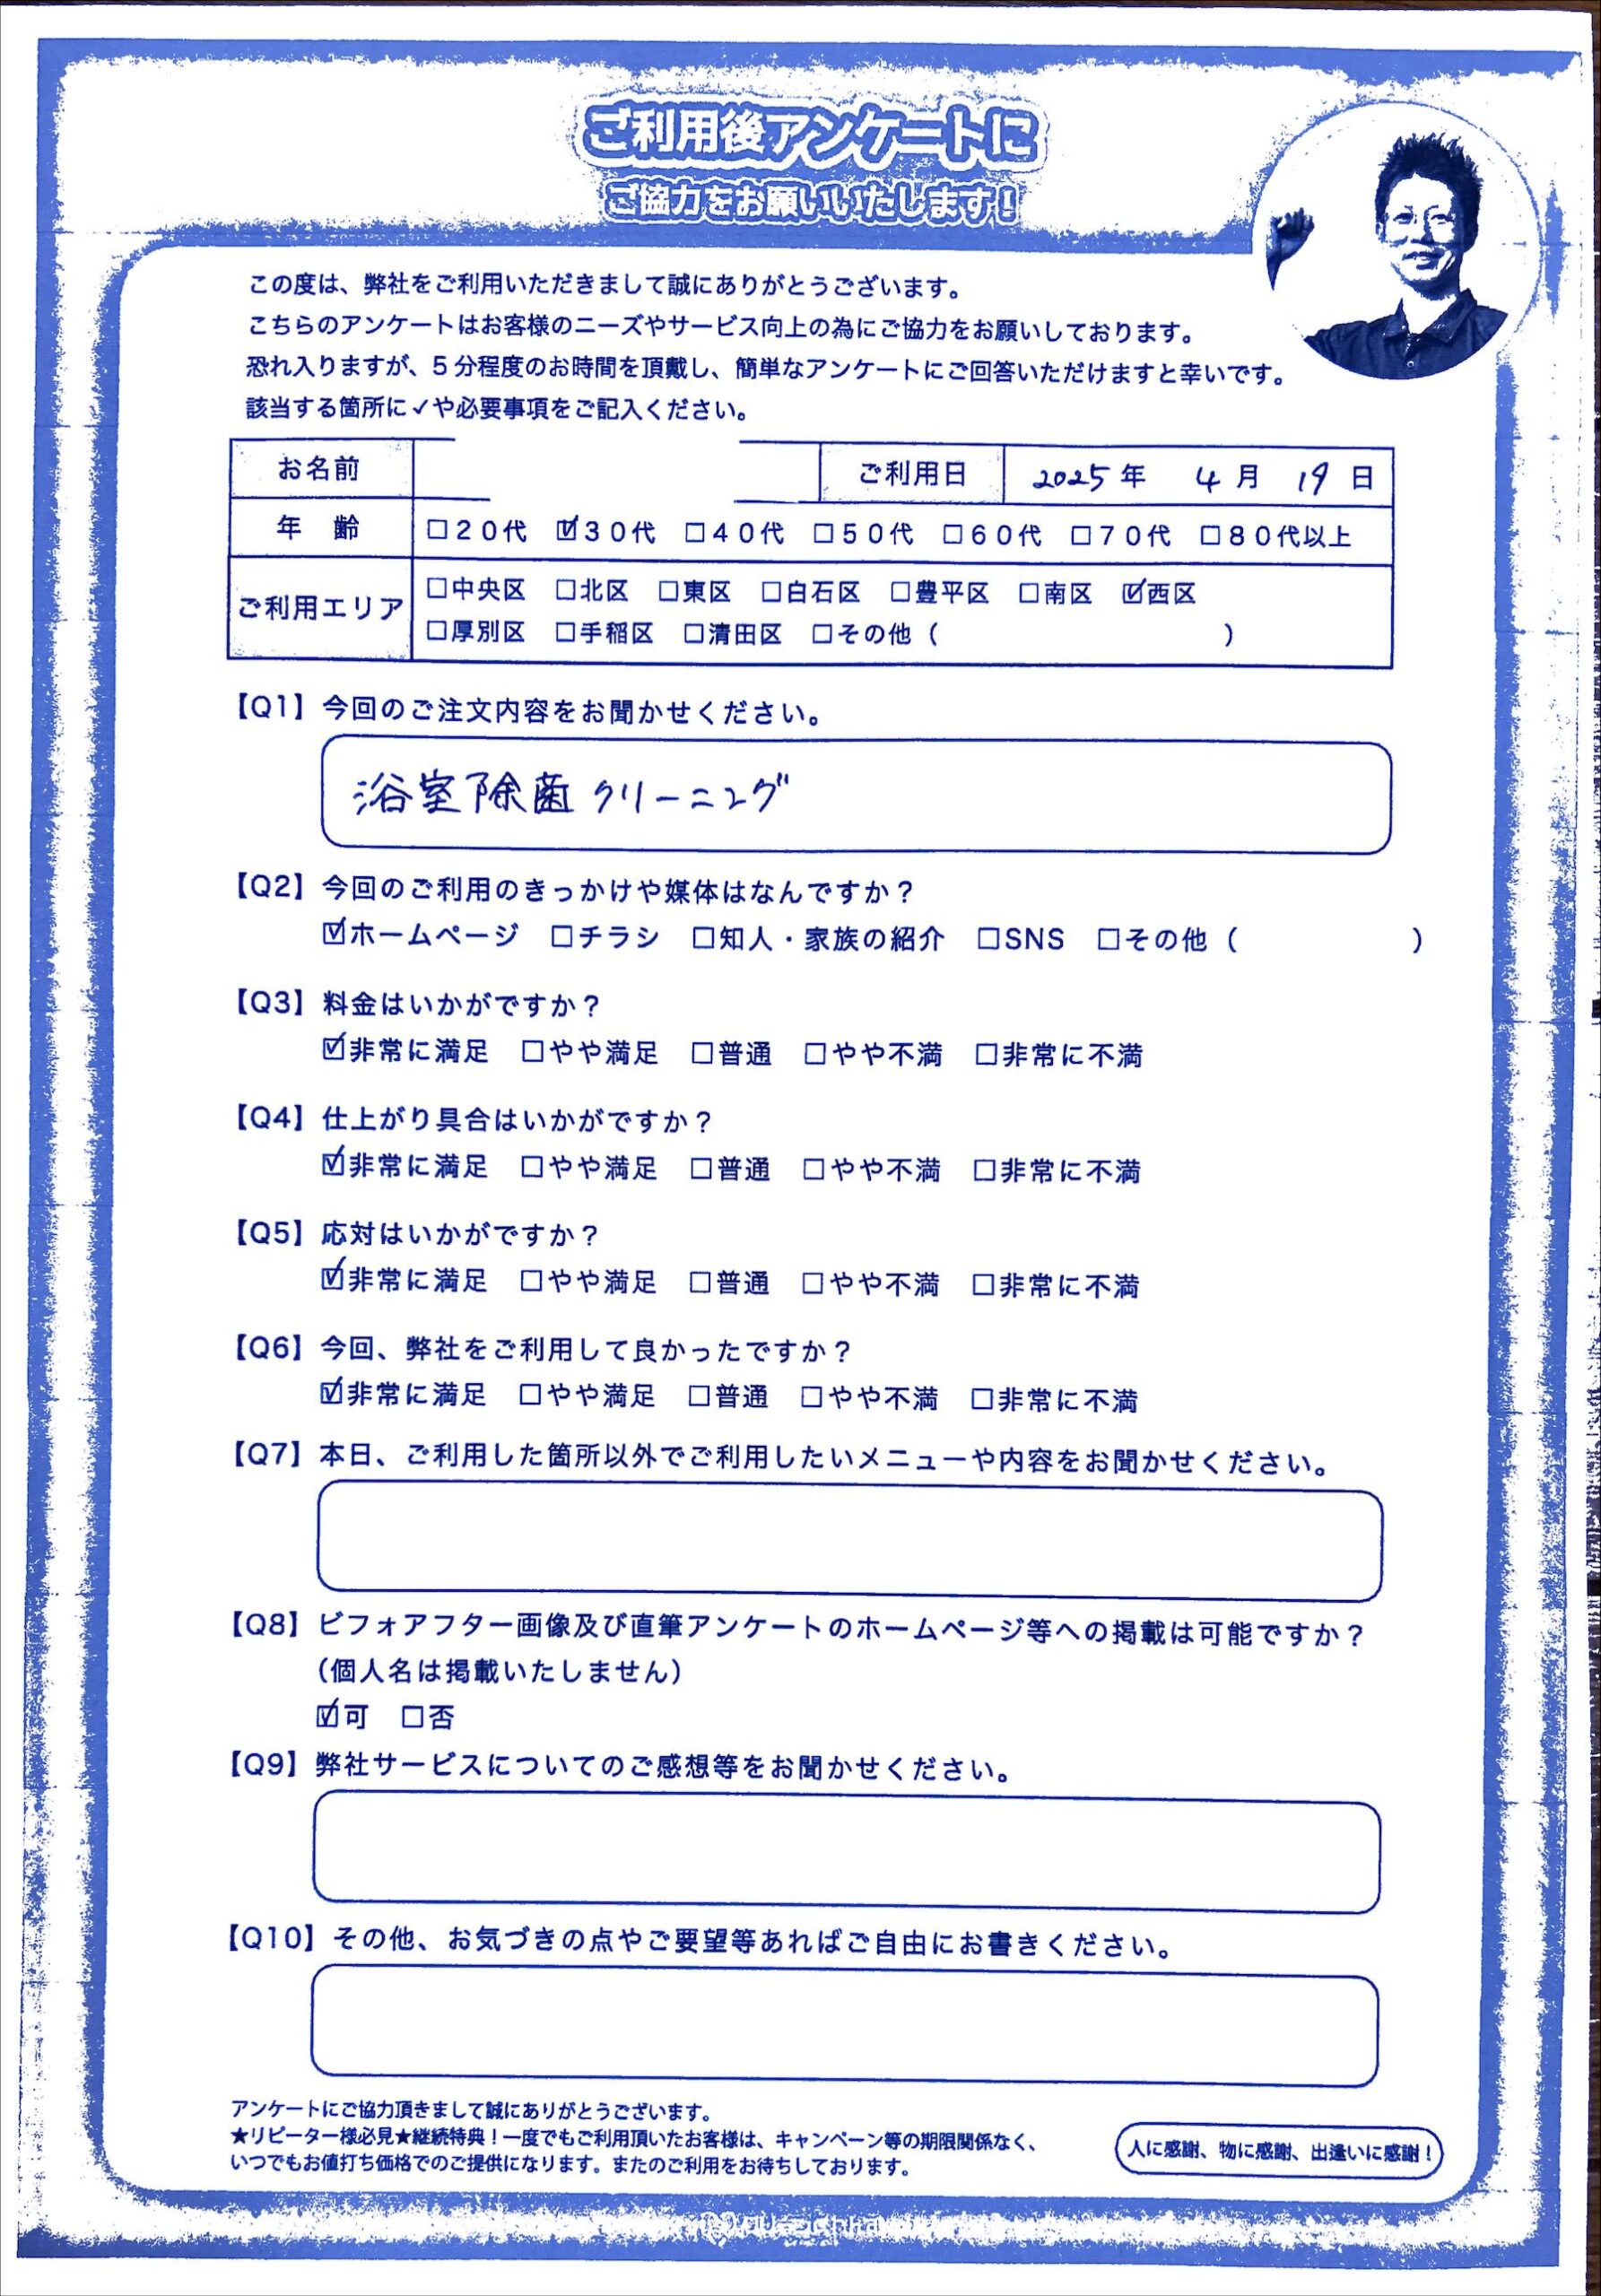 ご利用後アンケートに
ご協力をお願いいたします!
この度は、弊社をご利用いただきまして誠にありがとうございます。
こちらのアンケートはお客様のニーズやサービス向上の為にご協力をお願いしております。
恐れ入りますが、5分程度のお時間を頂戴し、簡単なアンケートにご回答いただけますと幸いです。
該当する箇所に✓や必要事項をご記入ください。
お名前 ご利用日 2025年 4月 19日
年 齢 □20代 ☑30代 □40代 □50代 □60代 □70代 □80代以上
ご利用エリア □中央区 □北区 □東区 □白石区 □豊平区 □南区 ☑西区
□厚別区 □手稲区 □清田区 □その他 ( )
【Q1】今回のご注文内容をお聞かせください。
浴室除菌クリーニング
【Q2】今回のご利用のきっかけや媒体はなんですか?
☑ホームページ □チラシ □知人・家族の紹介 □SNS □その他 ( )
【Q3】料金はいかがですか?
☑非常に満足 □やや満足 □普通 □やや不満 □非常に不満
【Q4】仕上がり具合はいかがですか?
☑非常に満足 □やや満足 □普通 □やや不満 □非常に不満
【Q5】応対はいかがですか?
☑非常に満足 □やや満足 □普通 □やや不満 □非常に不満
【Q6】今回、弊社をご利用して良かったですか?
☑非常に満足 □やや満足 □普通 □やや不満 □非常に不満
【Q7】本日、ご利用した箇所以外でご利用したいメニューや内容をお聞かせください。
【Q8】ビフォアフター画像及び直筆アンケートのホームページ等への掲載は可能ですか?
(個人名は掲載いたしません)
☑可 □否
【Q9】弊社サービスについてのご感想等をお聞かせください。
【Q10】その他、お気づきの点やご要望等あればご自由にお書きください。
アンケートにご協力頂きまして誠にありがとうございます。
★リピーター様必見★継続特典!一度でもご利用頂いたお客様は、キャンペーン等の期限関係なく、
いつでもお値打ち価格でのご提供になります。またのご利用をお待ちしております。
人に感謝、物に感謝、出逢いに感謝!